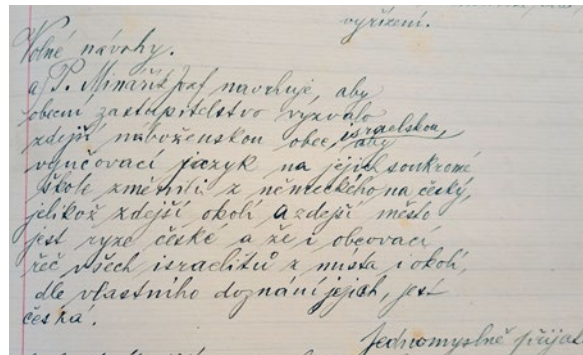 vyřízení.
Volné návrhy.
a P. Minařík Josef navrhuje, aby
obecní zastupitelstvo vyzvalo
zdejší náboženskou obec, israelskou, aby
vyučovací jazyk na jejich soukromé
škole změnili z německého na český,
jelikož zdejší okolí a zdejší město
jest ryze české a že i obcovací
řeč všech israelitů z místa i okolí,
dle vlastního doznání jejich, jest
česká.
Jednomyslně přijat